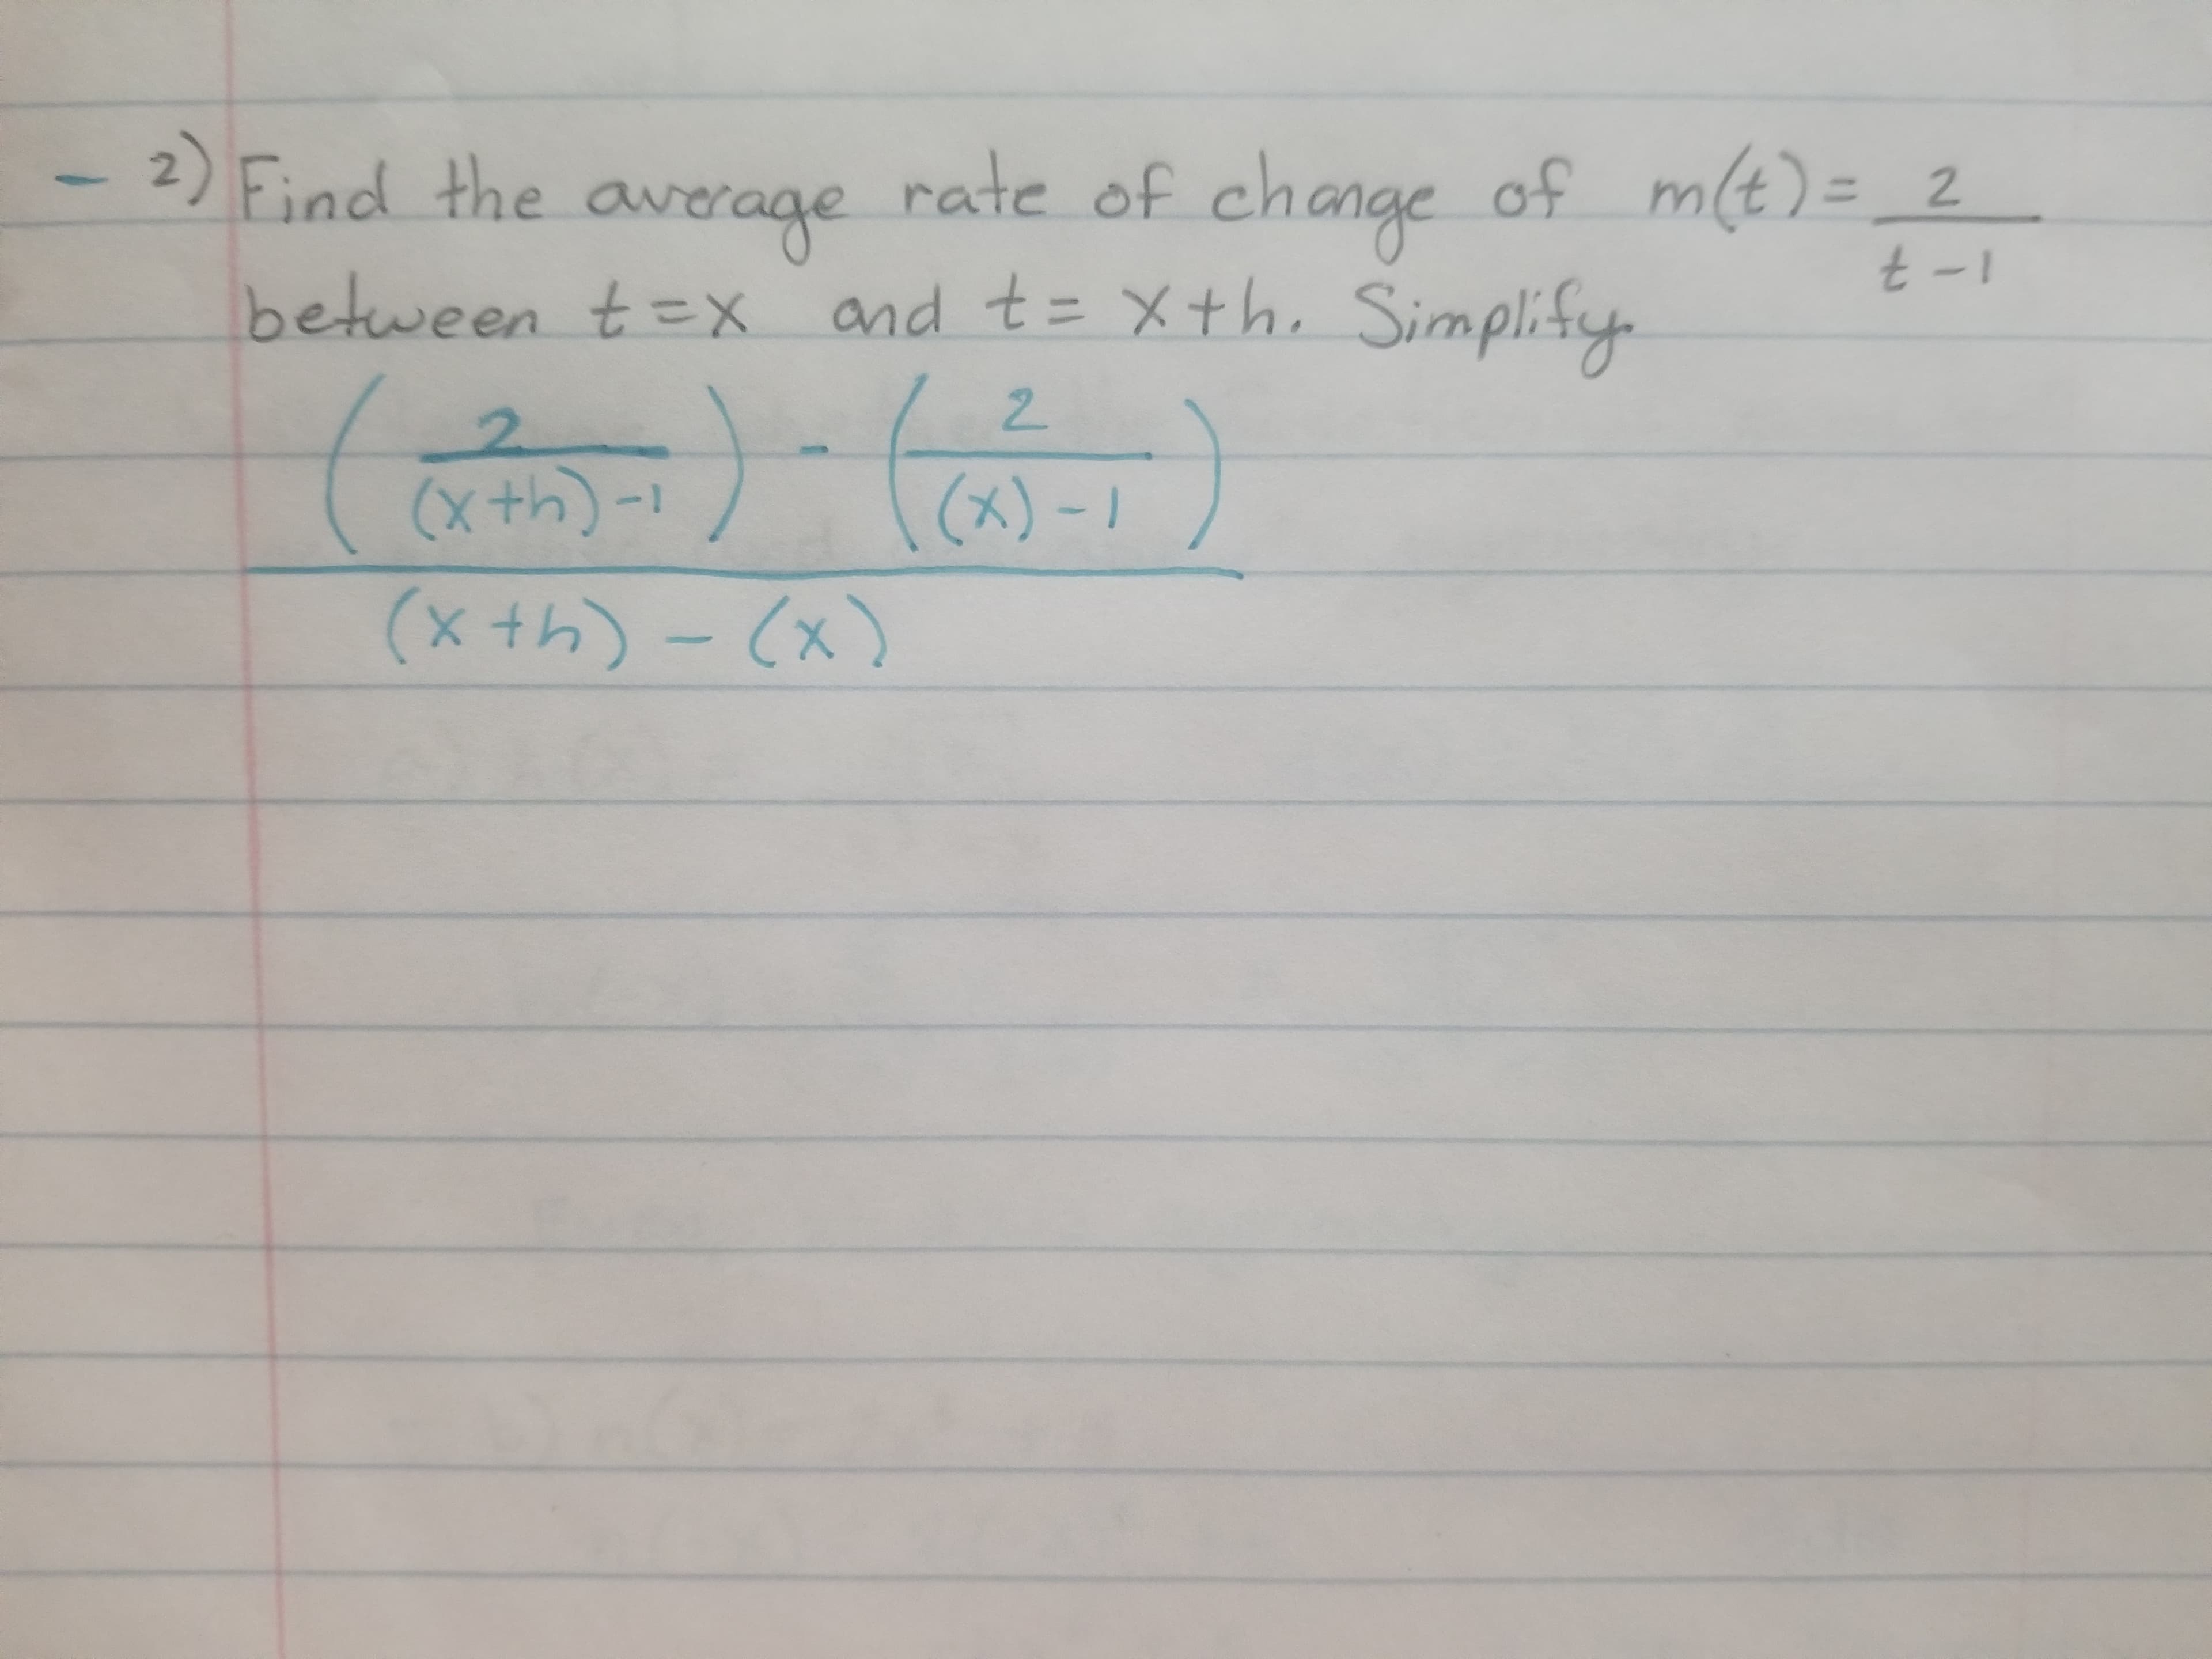 - 2) Find the average rate of change of m(t) = 2/(t-1)
between t=x and t= x+h. Simplify.
(2/((x+h)-1)) - (2/((x)-1))
(x+h) - (x)